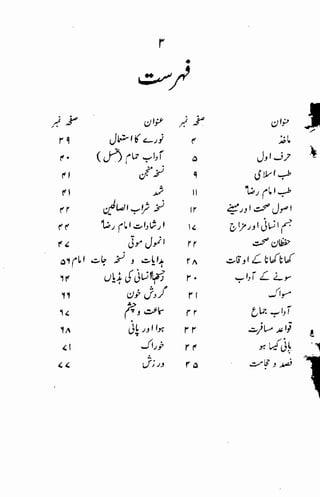 ۳
فہرست
عنوان صفحہ نمبر عنوان صفحہ نمبر
ماخذ ۴ نورے کا استعمال ۳۹
حرف اول ۵ آداب حمام (غسل) ۴۰
طب اسلامی ۹ نسخہ منجن ۴۱
طب امام رضاؑ ۱۱ شہد ۴۱
اصول صحت اور مہینے ۱۲ نسخہ شراب الصالحین ۴۲
جسم انسانی اور مزاج ۱۷ ارشادات امام رضاؑ ۴۴
حفظان صحت ۲۲ انمول موتی ۴۷
کھانا کھانے کے اوقات ۲۸ ہدایات و نسخہ جات امامؑ ۵۶
سونے کے آداب ۳۰ جسم انسانی کی ہڈیاں ۶۴
مسواک ۳۱ گردش خون ۶۶
آداب جماع ۳۲ سماعت و چشم ۶۷
قواعد مسافرت ۳۳ ہوا اور پانی ۶۸
پانی کیسا ہو ۳۴ خوراک ۷۱
فصد و حجامت ۳۵ ورزش ۷۷